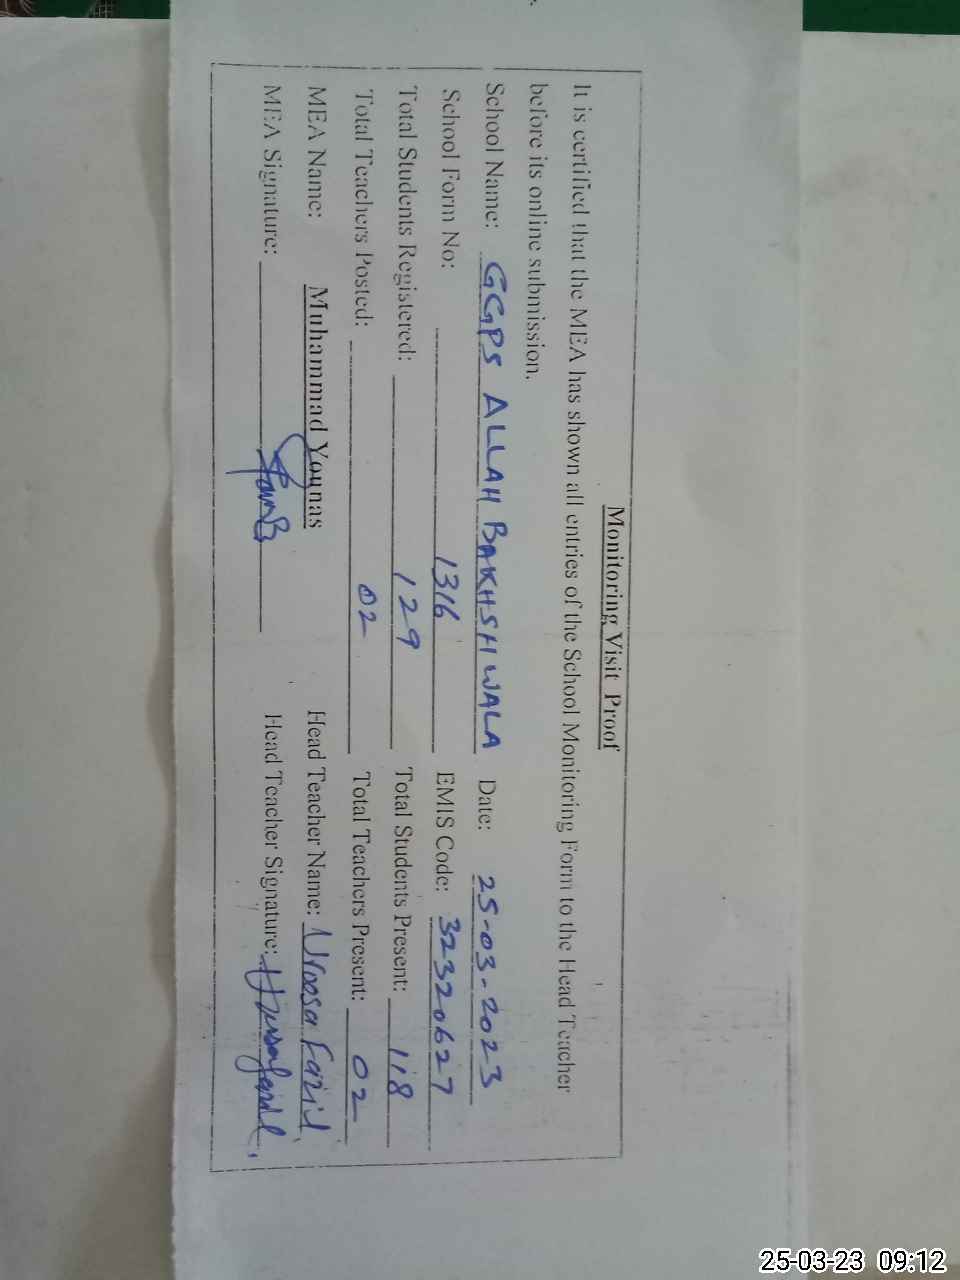 Monitoring Visit Proof
It is certified that the MEA has shown all entries of the School Monitoring Form to the Head Teacher
before its online submission.
School Name: GGPS ALLAH BAKHSH WALA Date: 25-03-2023
School Form No: 1316 EMIS Code: 32320627
Total Students Registered: 129 Total Students Present: 118
Total Teachers Posted: 02 Total Teachers Present: 02
MEA Name: Muhammad Younas Head Teacher Name: Uroosa Farid
MEA Signature: Head Teacher Signature:
25-03-23 09:12